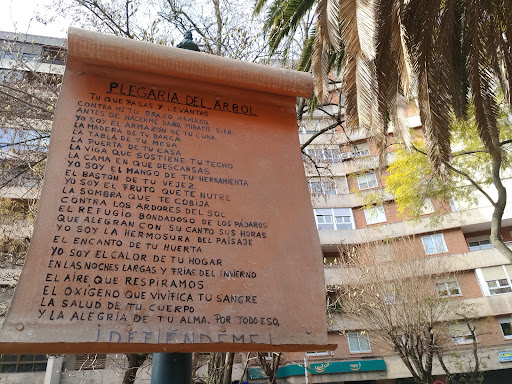 PLEGARIA DEL ÁRBOL
TU QUE PASAS Y LEVANTAS
CONTRA MI TU BRAZO ARMADO
ANTES DE HACERME DAÑO, MIRAME BIEN
YO SOY EL ARMAZON DE TU CUNA
LA MADERA DE TU BARCA
LA TABLA DE TU MESA
LA PUERTA DE TU CASA
LA VIGA QUE SOSTIENE TU TECHO
LA CAMA EN QUE DESCANSAS
YO SOY EL MANGO DE TU HERRAMIENTA
EL BASTON DE TU VEJEZ
YO SOY EL FRUTO QUE TE NUTRE
LA SOMBRA QUE TE COBIJA
CONTRA LOS ARDORES DEL SOL
EL REFUGIO BONDADOSO DE LOS PÁJAROS
QUE ALEGRAN CON SU CANTO SUS HORAS
YO SOY LA HERMOSURA DEL PAISAJE
EL ENCANTO DE TU HUERTA
YO SOY EL CALOR DE TU HOGAR
EN LAS NOCHES LARGAS Y FRIAS DEL INVIERNO
EL AIRE QUE RESPIRAMOS
EL OXÍGENO QUE VIVIFICA TU SANGRE
LA SALUD DE TU CUERPO
Y LA ALEGRÍA DE TU ALMA. POR TODO ESO,
¡DEFIÉNDEME!